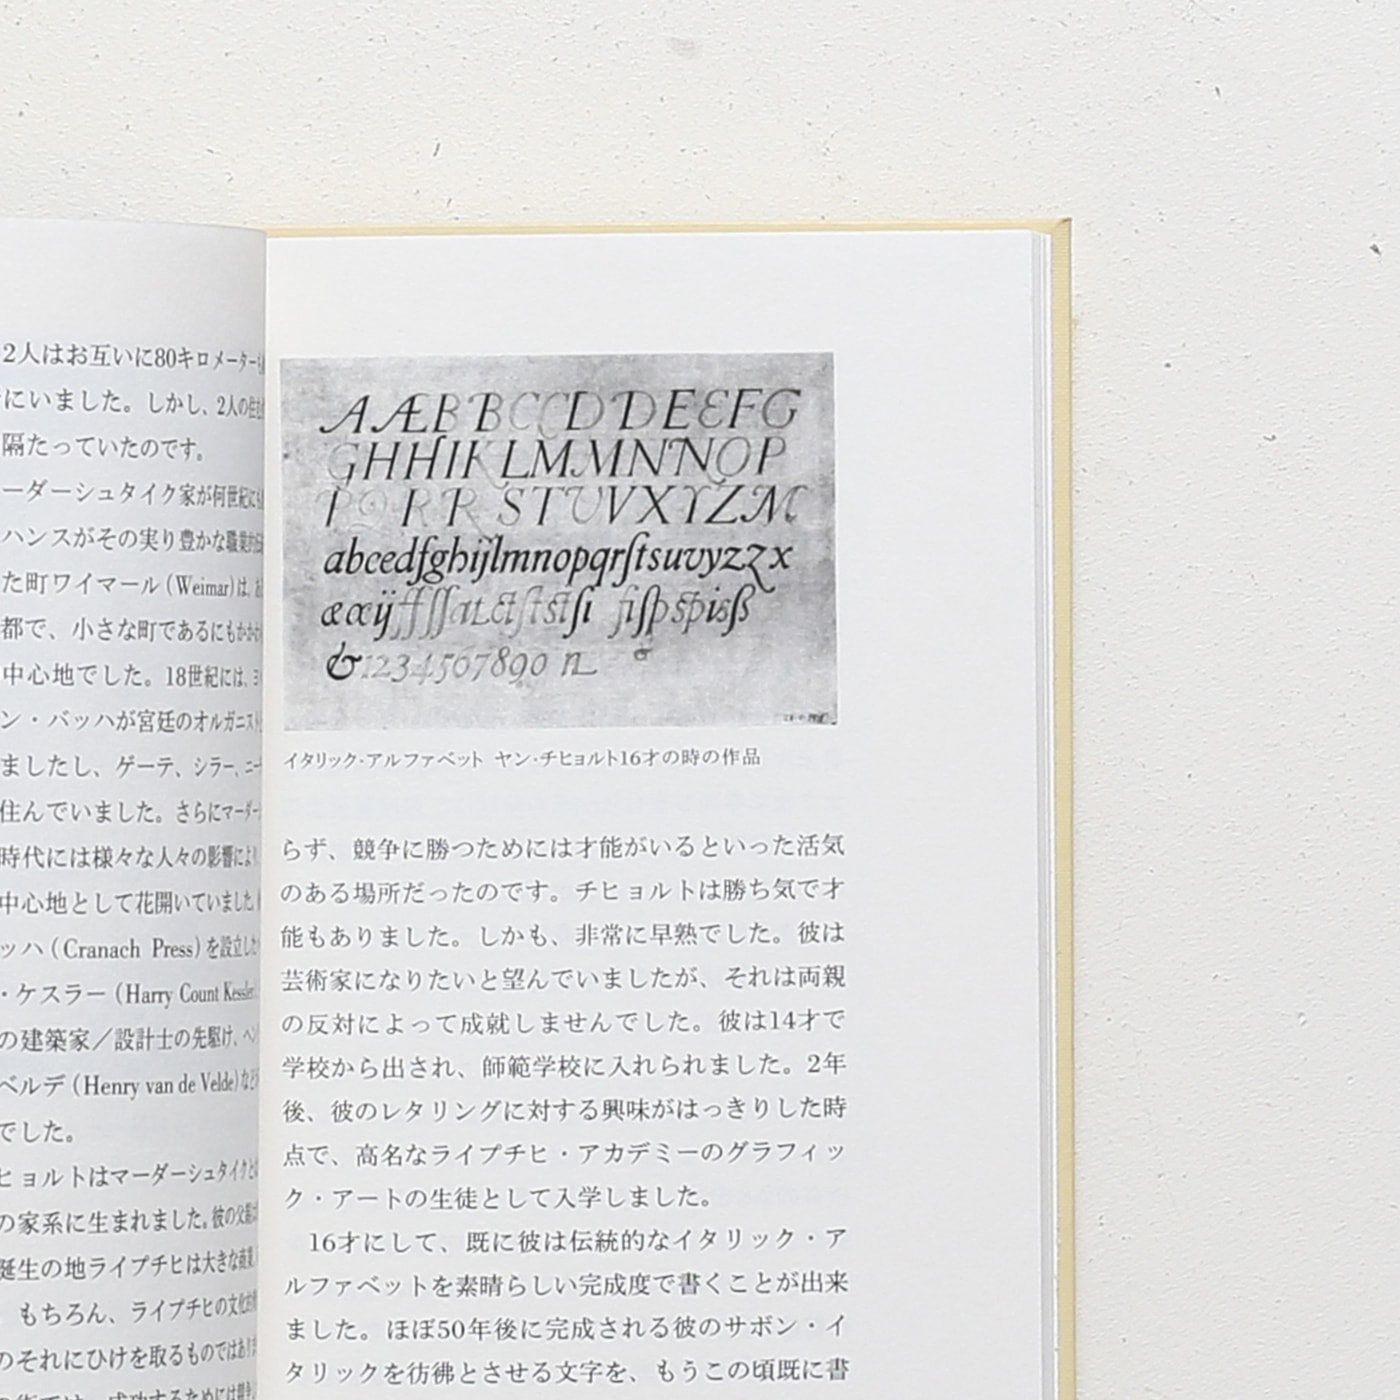 2人はお互いに80キロメーター
にいました。しかし、2人の住
隔たっていたのです。
ーダーシュタイク家が何世紀に
ハンスがその実り豊かな職業的
た町ワイマール(Weimar)は、
都で、小さな町であるにもかかわ
中心地でした。18世紀には、ヨ
ン・バッハが宮廷のオルガニスト
ましたし、ゲーテ、シラー、ニー
住んでいました。さらにマーダー
時代には様々な人々の影響により
中心地として花開いていました。
ッハ(Cranach Press)を設立した
・ケスラー(Harry Count Kessler)
の建築家／設計士の先駆け、ヘン
ベルデ(Henry van de Velde)など
でした。
ヒョルトはマーダーシュタイクと
の家系に生まれました。彼の父親は
誕生の地ライプチヒは大きな商業
もちろん、ライプチヒの文化的
のそれにひけを取るものではあり
成功するためには競争
AÆBBCCDDEEFG
GHHIKLMMNNOP
PQRRSTUVXYZM
abcedfghijlmnopqrſtsuvyzzx
&1234567890 n
イタリック・アルファベット ヤン・チヒョルト16才の時の作品
らず、競争に勝つためには才能がいるといった活気
のある場所だったのです。チヒョルトは勝ち気で才
能もありました。しかも、非常に早熟でした。彼は
芸術家になりたいと望んでいましたが、それは両親
の反対によって成就しませんでした。彼は14才で
学校から出され、師範学校に入れられました。2年
後、彼のレタリングに対する興味がはっきりした時
点で、高名なライプチヒ・アカデミーのグラフィッ
ク・アートの生徒として入学しました。
16才にして、既に彼は伝統的なイタリック・ア
ルファベットを素晴らしい完成度で書くことが出来
ました。ほぼ50年後に完成される彼のサボン・イ
タリックを彷彿とさせる文字を、もうこの頃既に書